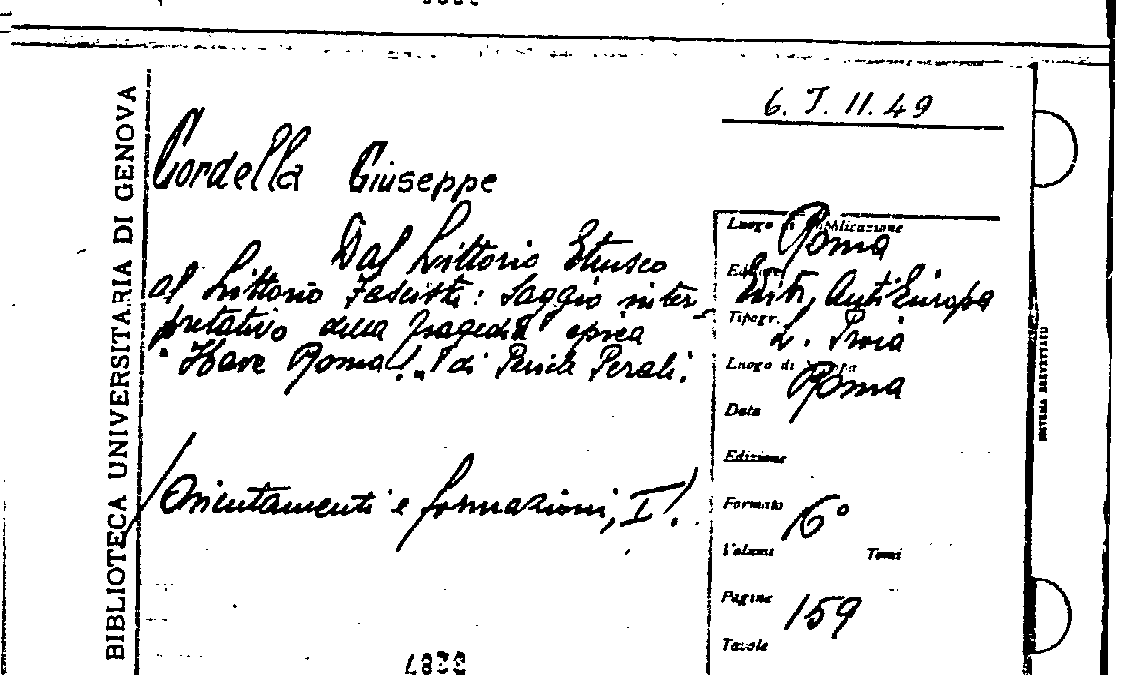 BIBLIOTECA UNIVERSITARIA DI GENOVA
6. J. II. 49
Cordella Giuseppe
Dal Littorio Etrusco
al Littorio Fascista: Saggio inter-
pretativo della tragedia epica
"Have Roma!„ di Pericle Perali.
/Orientamenti e formazioni, I/.
Luogo di Pubblicazione Roma
Editore Ediz. AntiEuropa
Tipogr. L. Proia
Luogo di Roma
Data
Edizione
Formato 16°
Volume Tomi
Pagine 159
Tavole
SISTEMA BREVETTATO